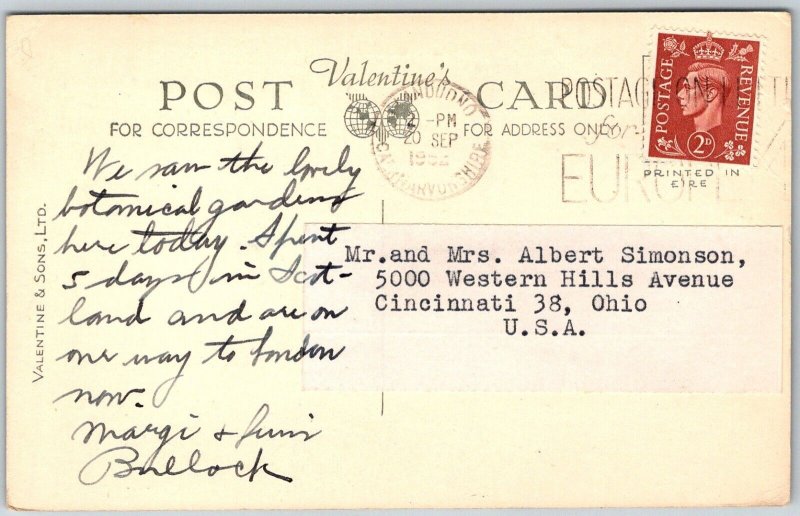 Valentine's
POST CARD
FOR CORRESPONDENCE
FOR ADDRESS ONLY
2 -PM
20 SEP
CAERNARVONSHIRE
POSTAGE ON
for
POSTAGE
REVENUE
2D
PRINTED IN
EIRE
VALENTINE & SONS, LTD.
We saw the lovely
botanical gardens
here today. Spent
5 days in Scot-
land and are on
our way to London
now.
Margi &
Bullock
Mr.and Mrs. Albert Simonson,
5000 Western Hills Avenue
Cincinnati 38, Ohio
U.S.A.